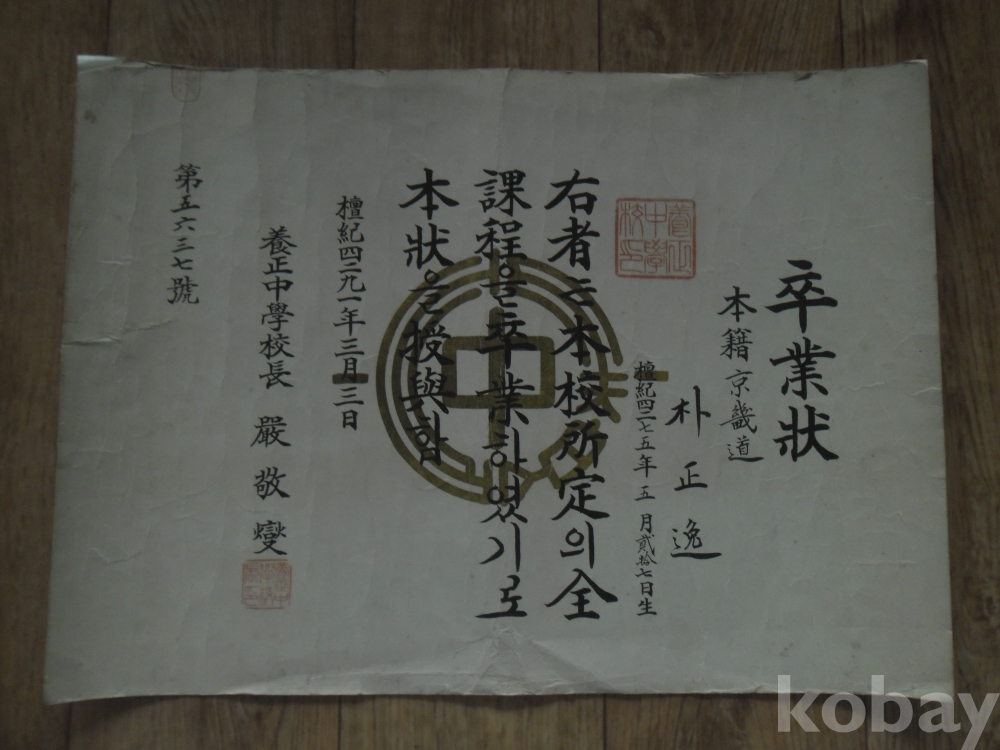 卒業狀
本籍 京畿道
朴正逸
檀紀四二七五年五月貳拾七日生
右者는 本校所定의 全
課程을 卒業하였기로
本狀을 授與함
檀紀四二九一年三月三日
養正中學校長 嚴敬燮
第五六三七號
養正中學校印
中
kobay